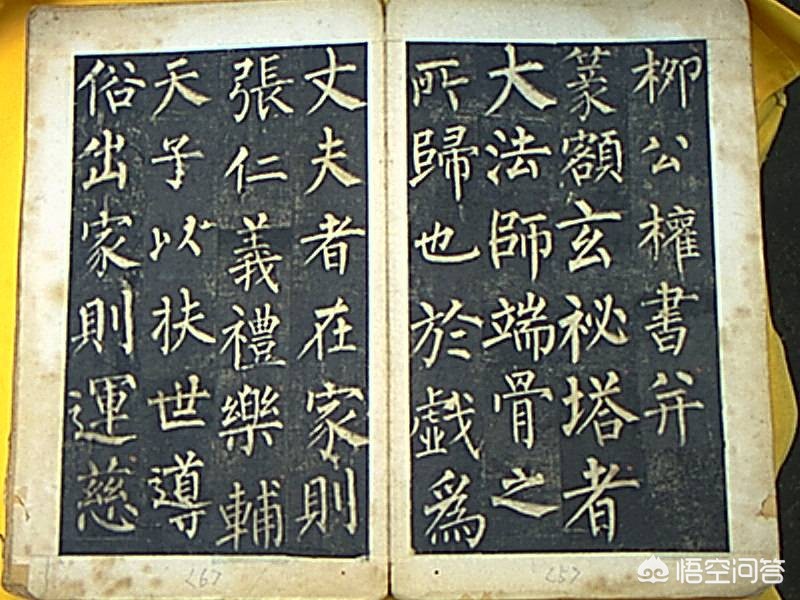 柳公權書并
篆額玄祕塔者
大法師端骨之
所歸也於戲爲
丈夫者在家則
張仁義禮樂輔
天子以扶世導
俗出家則運慈
<5>
<6>
悟空问答